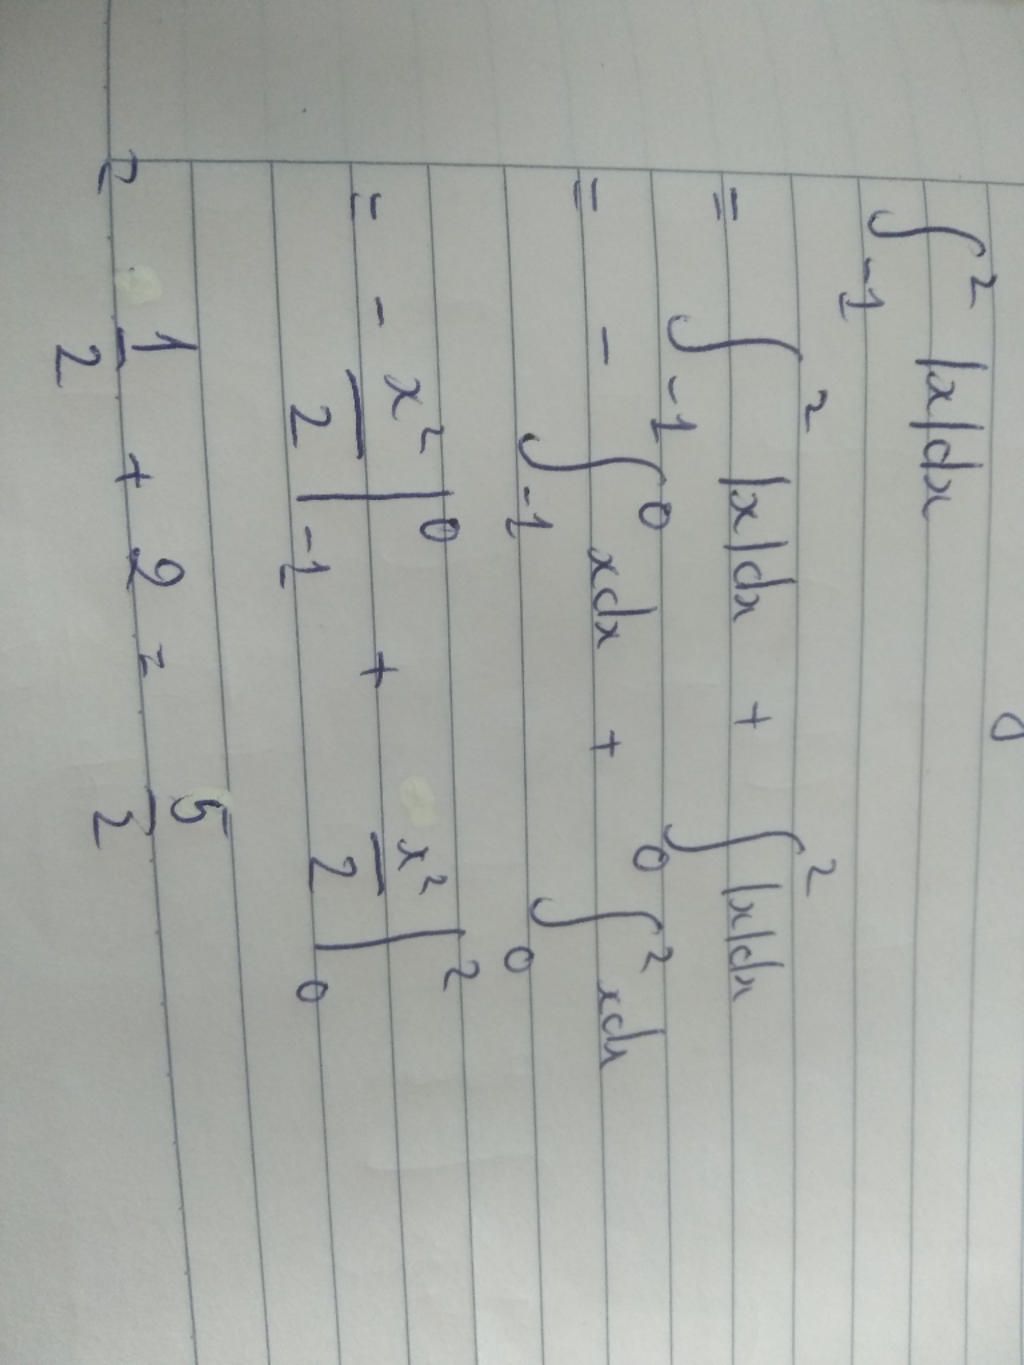 ∫_{-1}^{2} |x|dx
= ∫_{-1}^{2} |x|dx + ∫_{0}^{2} |x|dx
= - ∫_{-1}^{0} xdx + ∫_{0}^{2} xdx
= - x²/2 |_{-1}^{0} + x²/2 |_{0}^{2}
= 1/2 + 2 = 5/2